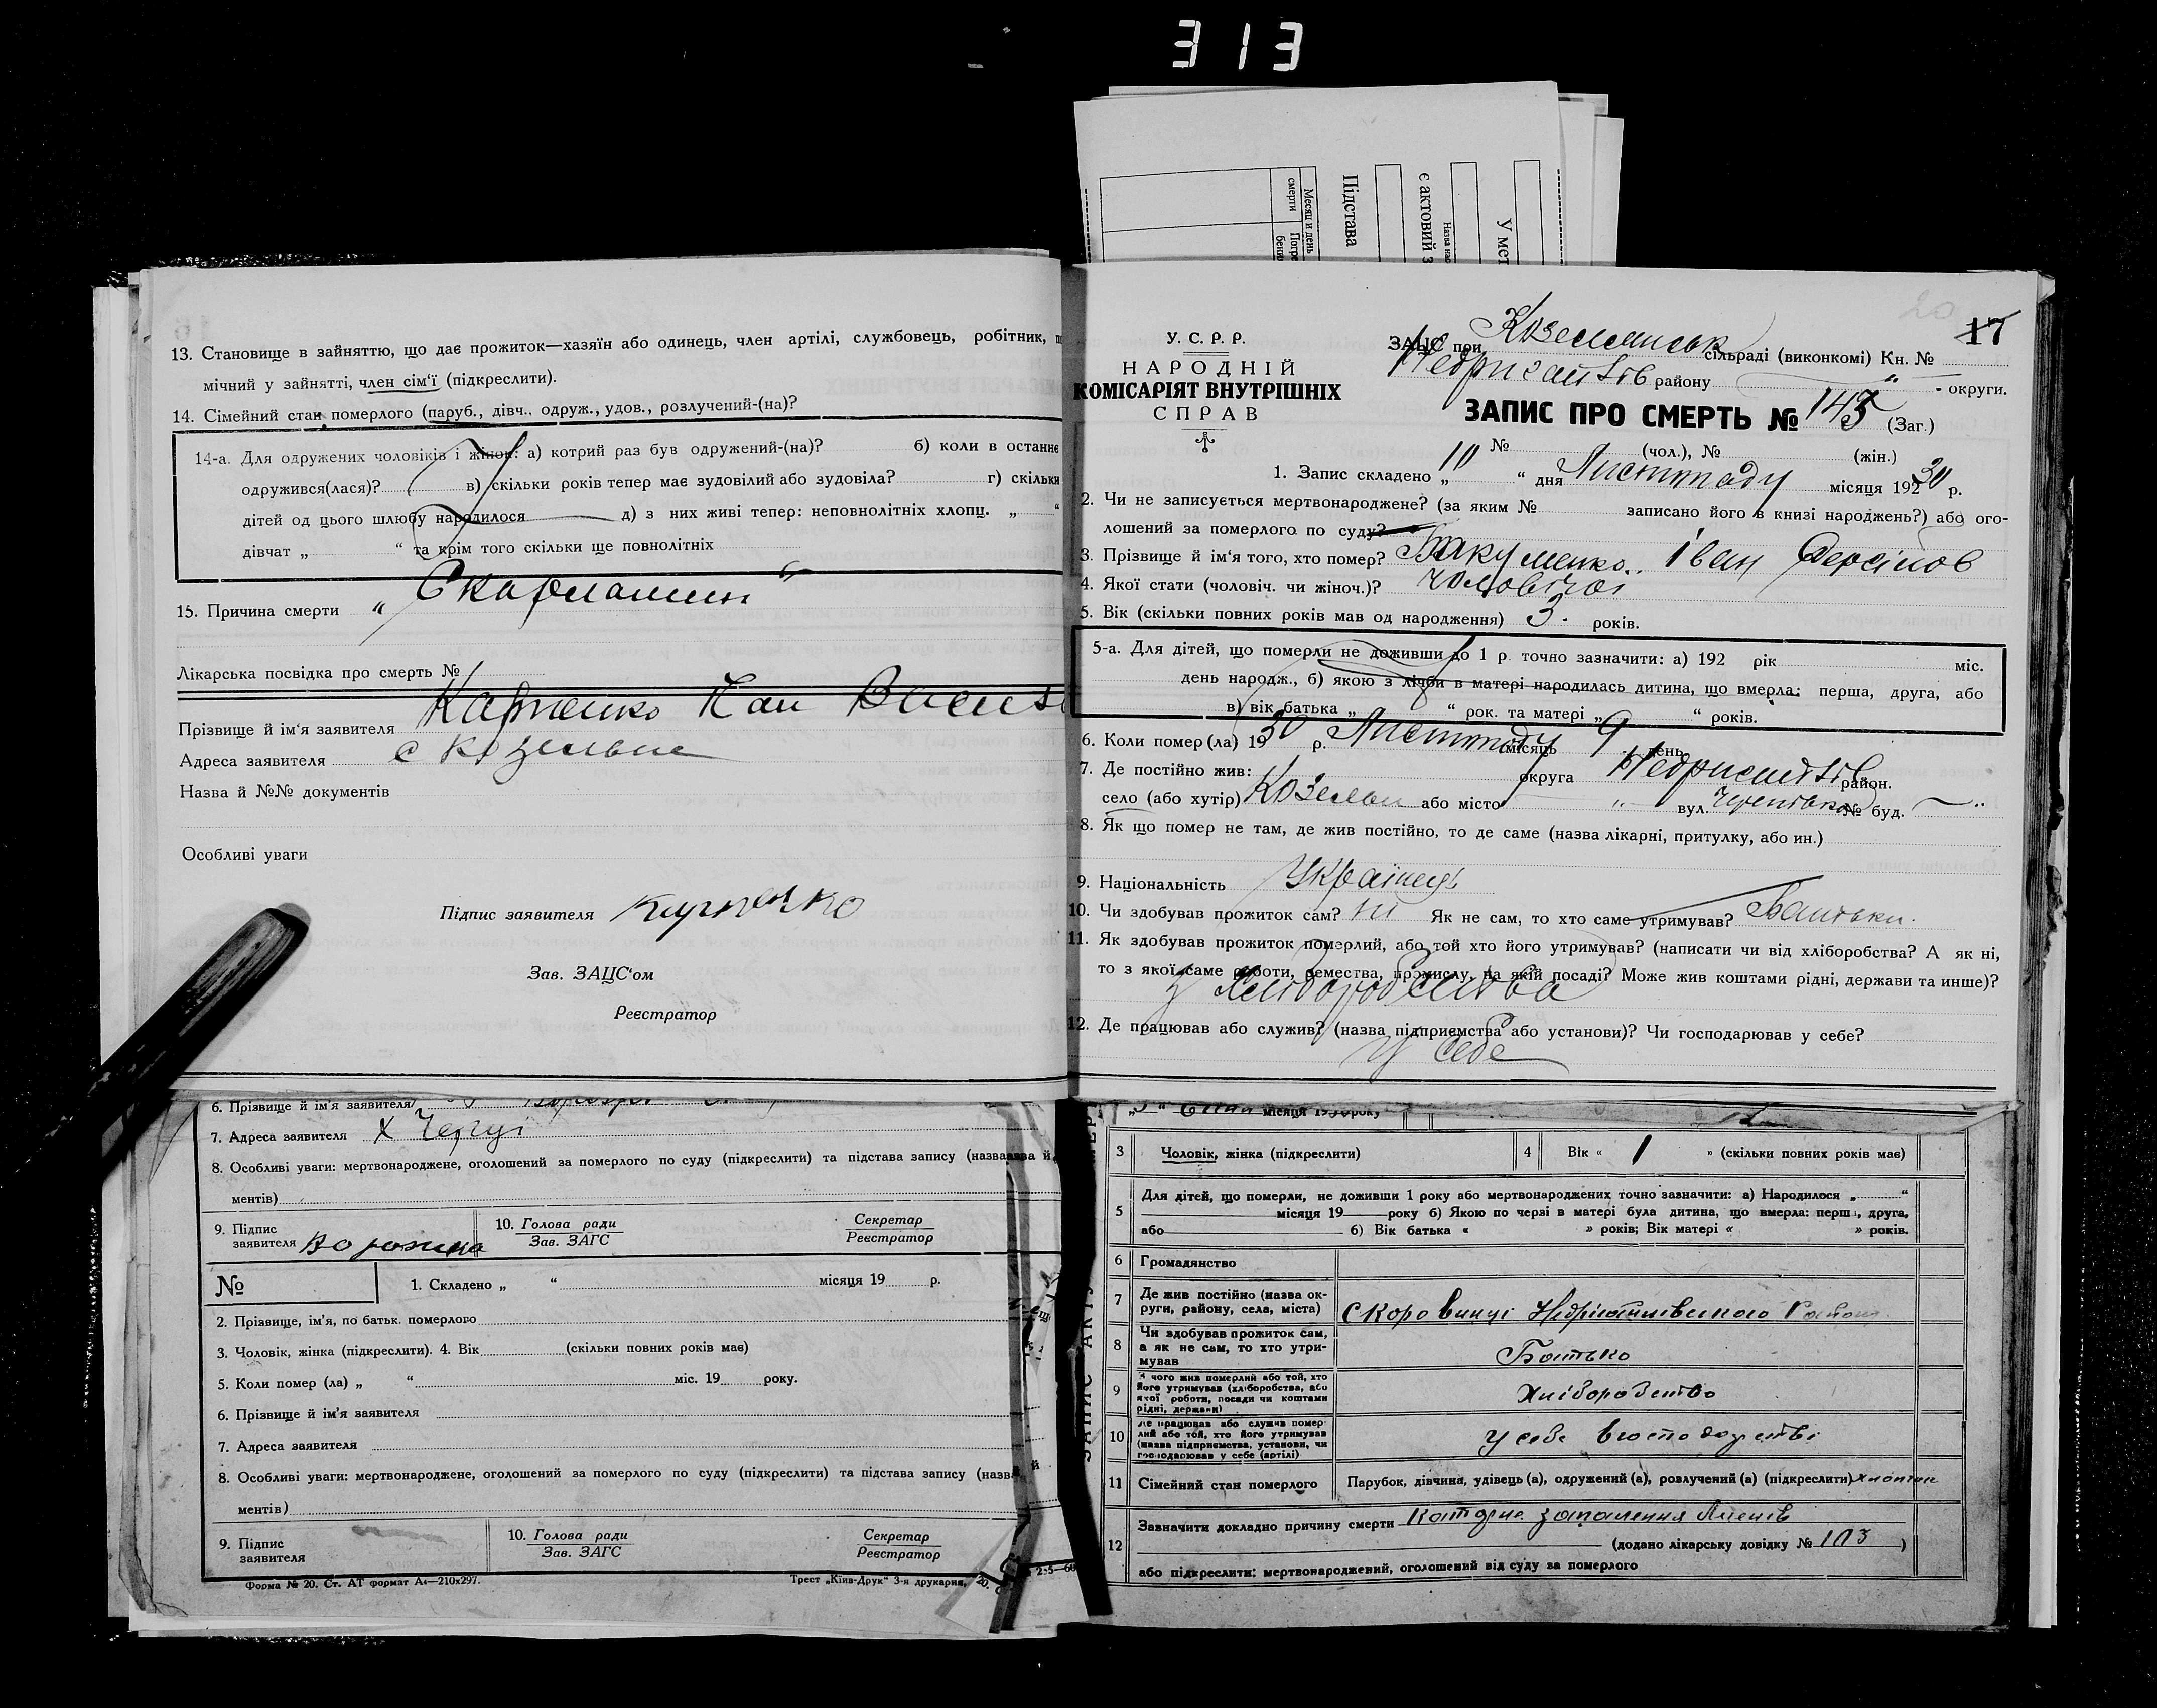 313
Месяц и день
смерти
Погре
бени
Підстава
є актовий з
Назва нас
У мет
13. Становище в зайняттю, що дає прожиток—хазяїн або одинець, член артілі, службовець, робітник, п
мічний у зайнятті, член сім‘ї (підкреслити).
14. Сімейний стан померлого (паруб., дівч., одруж., удов., розлучений-(на)?
14-а. Для одружених чоловіків і жінок: а) котрий раз був одружений-(на)? б) коли в останнє
одружився(лася)? в) скільки років тепер має зудовілий або зудовіла? г) скільки
дітей од цього шлюбу народилося д) з них живі тепер: неповнолітніх хлопц. „ “
дівчат „ “ та крім того скільки ще повнолітніх
15. Причина смерти „ Скарлатин “
Лікарська посвідка про смерть №
Прізвище й ім‘я заявителя Карпенко
Адреса заявителя с Козельне
Назва й №№ документів
Особливі уваги
Підпис заявителя Карпенко
Зав. ЗАЦС‘ом
Реєстратор
6. Прізвище й ім'я заявителя
7. Адреса заявителя х
8. Особливі уваги: мертвонароджене, оголошений за померлого по суду (підкреслити) та підстава запису (назва й
ментів)
9. Підпис
заявителя
10. Голова ради
Зав. ЗАГС
Секретар
Реєстратор
№
1. Складено „ “ місяця 19 р.
2. Прізвище, ім'я, по батьк. померлого
3. Чоловік, жінка (підкреслити). 4. Вік (скільки повних років має)
5. Коли помер (ла) „ “ міс. 19 року.
6. Прізвище й ім'я заявителя
7. Адреса заявителя
8. Особливі уваги: мертвонароджене, оголошений за померлого по суду (підкреслити) та підстава запису (назв
ментів)
9. Підпис
заявителя
10. Голова ради
Зав. ЗАГС
Секретар
Реєстратор
Форма № 20. Ст. АТ формат А4—210х297. Трест „Київ-Друк“ 3-я друкарня,
20 17
У. С. Р. Р.
НАРОДНІЙ
КОМІСАРІЯТ ВНУТРІШНІХ
СПРАВ
ЗАЦС при сільраді (виконкомі) Кн. №
Недригайлів району - округи.
ЗАПИС ПРО СМЕРТЬ № 143 (Заг.)
№ (чол.), № (жін.)
1. Запис складено „ 10 “ дня Листопаду місяця 1930 р.
2. Чи не записується мертвонароджене? (за яким № записано його в книзі народжень?) або ого-
лошений за померлого по суду?
3. Прізвище й ім‘я того, хто помер? Бакуменко Іван
4. Якої стати (чоловіч. чи жіноч.)? чоловічої
5. Вік (скільки повних років мав од народження) 3 років.
5-а. Для дітей, що померли не доживши до 1 р. точно зазначити: а) 192 рік міс.
день народж., б) якою з лічби в матері народилась дитина, що вмерла: перша, друга, або
в) вік батька „ “ рок. та матері „ “ років.
6. Коли помер(ла) 1930 р. Листопаду місяць 9 день.
7. Де постійно жив: округа Недригайлів район.
село (або хутір) або місто „ вул. № буд.
8. Як що помер не там, де жив постійно, то де саме (назва лікарні, притулку, або ин.)
9. Національність Українець
10. Чи здобував прожиток сам? ні Як не сам, то хто саме утримував? Батьки
11. Як здобував прожиток померлий, або той хто його утримував? (написати чи від хліборобства? А як ні,
то з якої саме роботи, ремества, промислу, на якій посаді? Може жив коштами рідні, держави та инше)?
З Хліборобства
12. Де працював або служив? (назва підприємства або установи)? Чи господарював у себе?
У себе
місяця 1930 року
3 Чоловік, жінка (підкреслити) 4 Вік « 1 » (скільки повних років має)
5 Для дітей, що померли, не доживши 1 року або мертвонароджених точно зазначити: а) Народилося „ “
місяця 19 року б) Якою по черзі в матері була дитина, що вмерла: перша, друга,
або б) Вік батька « » років; Вік матері « » років.
6 Громадянство
7 Де жив постійно (назва ок-
руги, району, села, міста) с Коровинці Недригайлівського Району
8 Чи здобував прожиток сам,
а як не сам, то хто утри-
мував Батько
9 З чого жив померлий або той, хто
його утримував (хліборобства, або
якої роботи, посади чи коштами
рідні, держави) Хліборобство
10 Де працював або служив помер-
лий або той, хто його утримував
(назва підприємства, установи, чи
господарював у себе (артілі) У себе в господарстві
11 Сімейний стан померлого Парубок, дівчина, удівець (а), одружений (а), розлучений (а) (підкреслити)
12 Зазначити докладно причину смерти запалення
(додано лікарську довідку № 103 )
або підкреслити: мертвонароджений, оголошений від суду за померлого